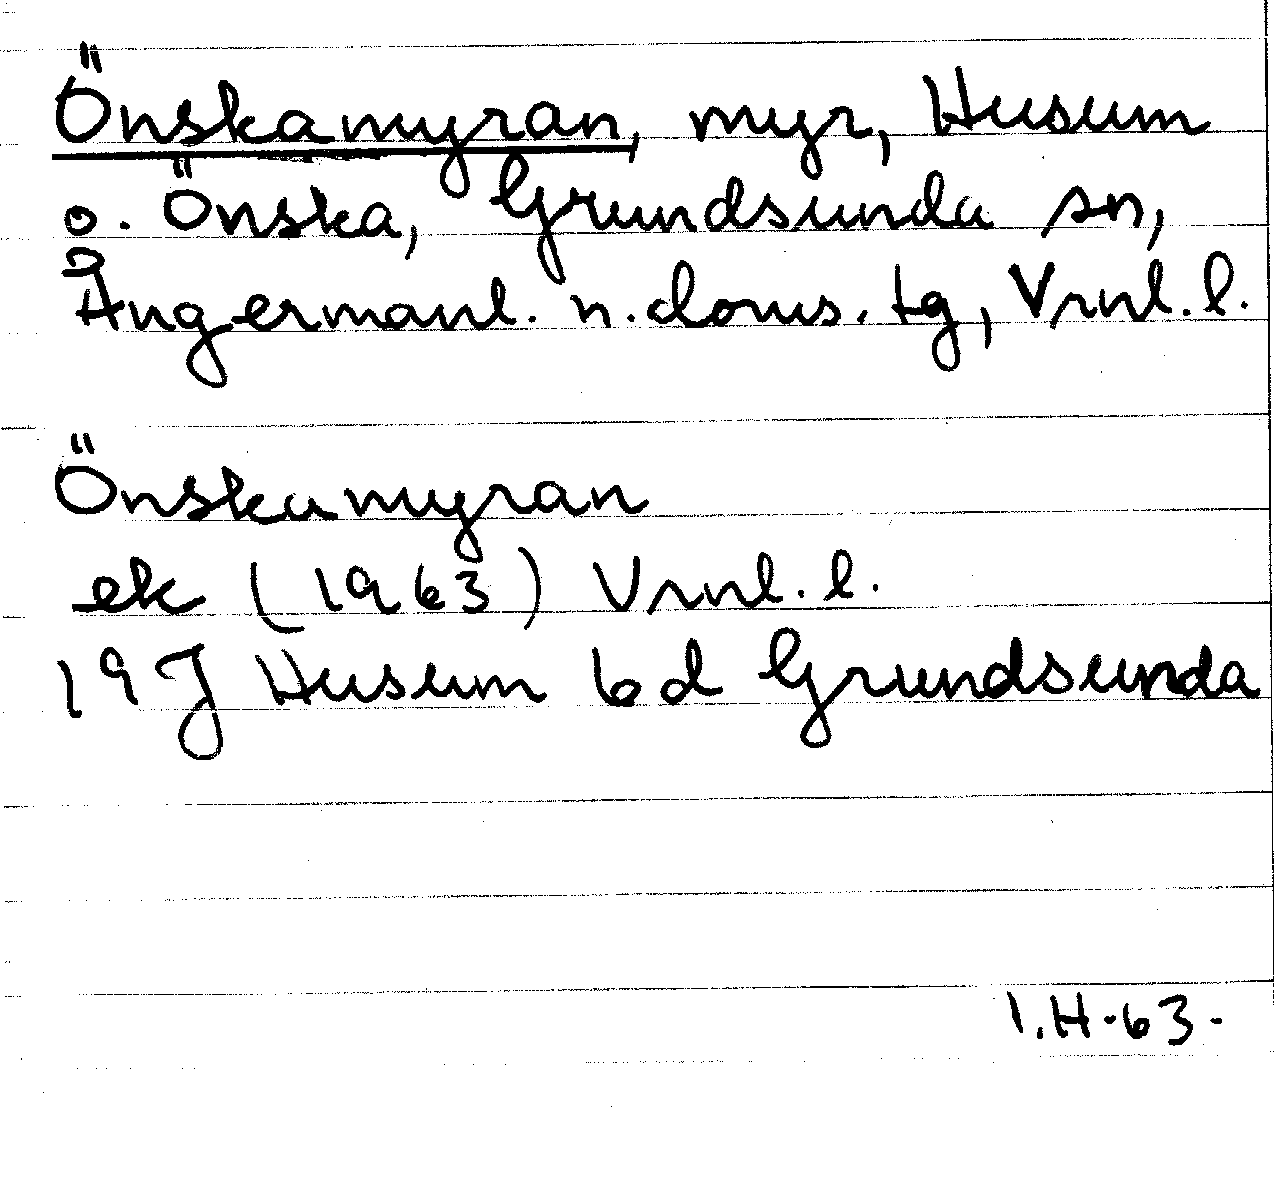 Önskamyran, myr, Husum
o. Önska, Grundsunda sn,
Ångermanl. n. doms. tg, Vrnl. l.
Önskamyran
ek (1963) Vrnl. l.
19 J Husum 6d Grundsunda
I.H-63-